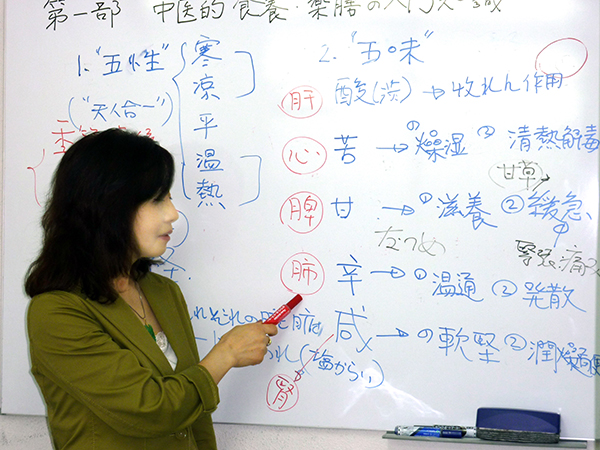 第一部 中医的食養・薬膳の入門
1. "五性"
("天人合一")
寒
涼
平
温
熱
2. "五味"
肝 酸(渋) → 收れん作用
心 苦 → ①燥湿 ② 清熱解毒
甘草
脾 甘 → ① 滋養 ② 緩急
肺 辛 → ① 温通 ② 発散
咸 → ① 軟堅 ② 潤燥
(塩からい)
腎